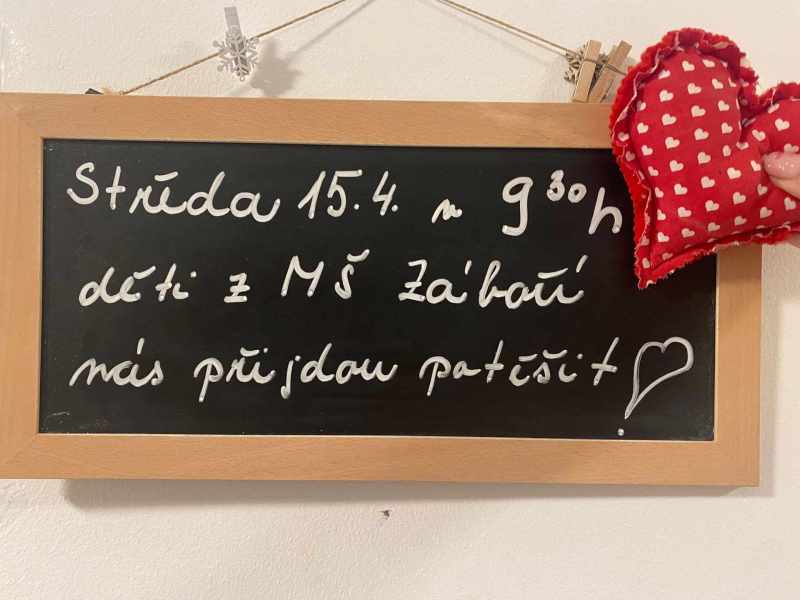 Středa 15.4. v 9³⁰h
děti z MŠ Záboří
nás přijdou potěšit